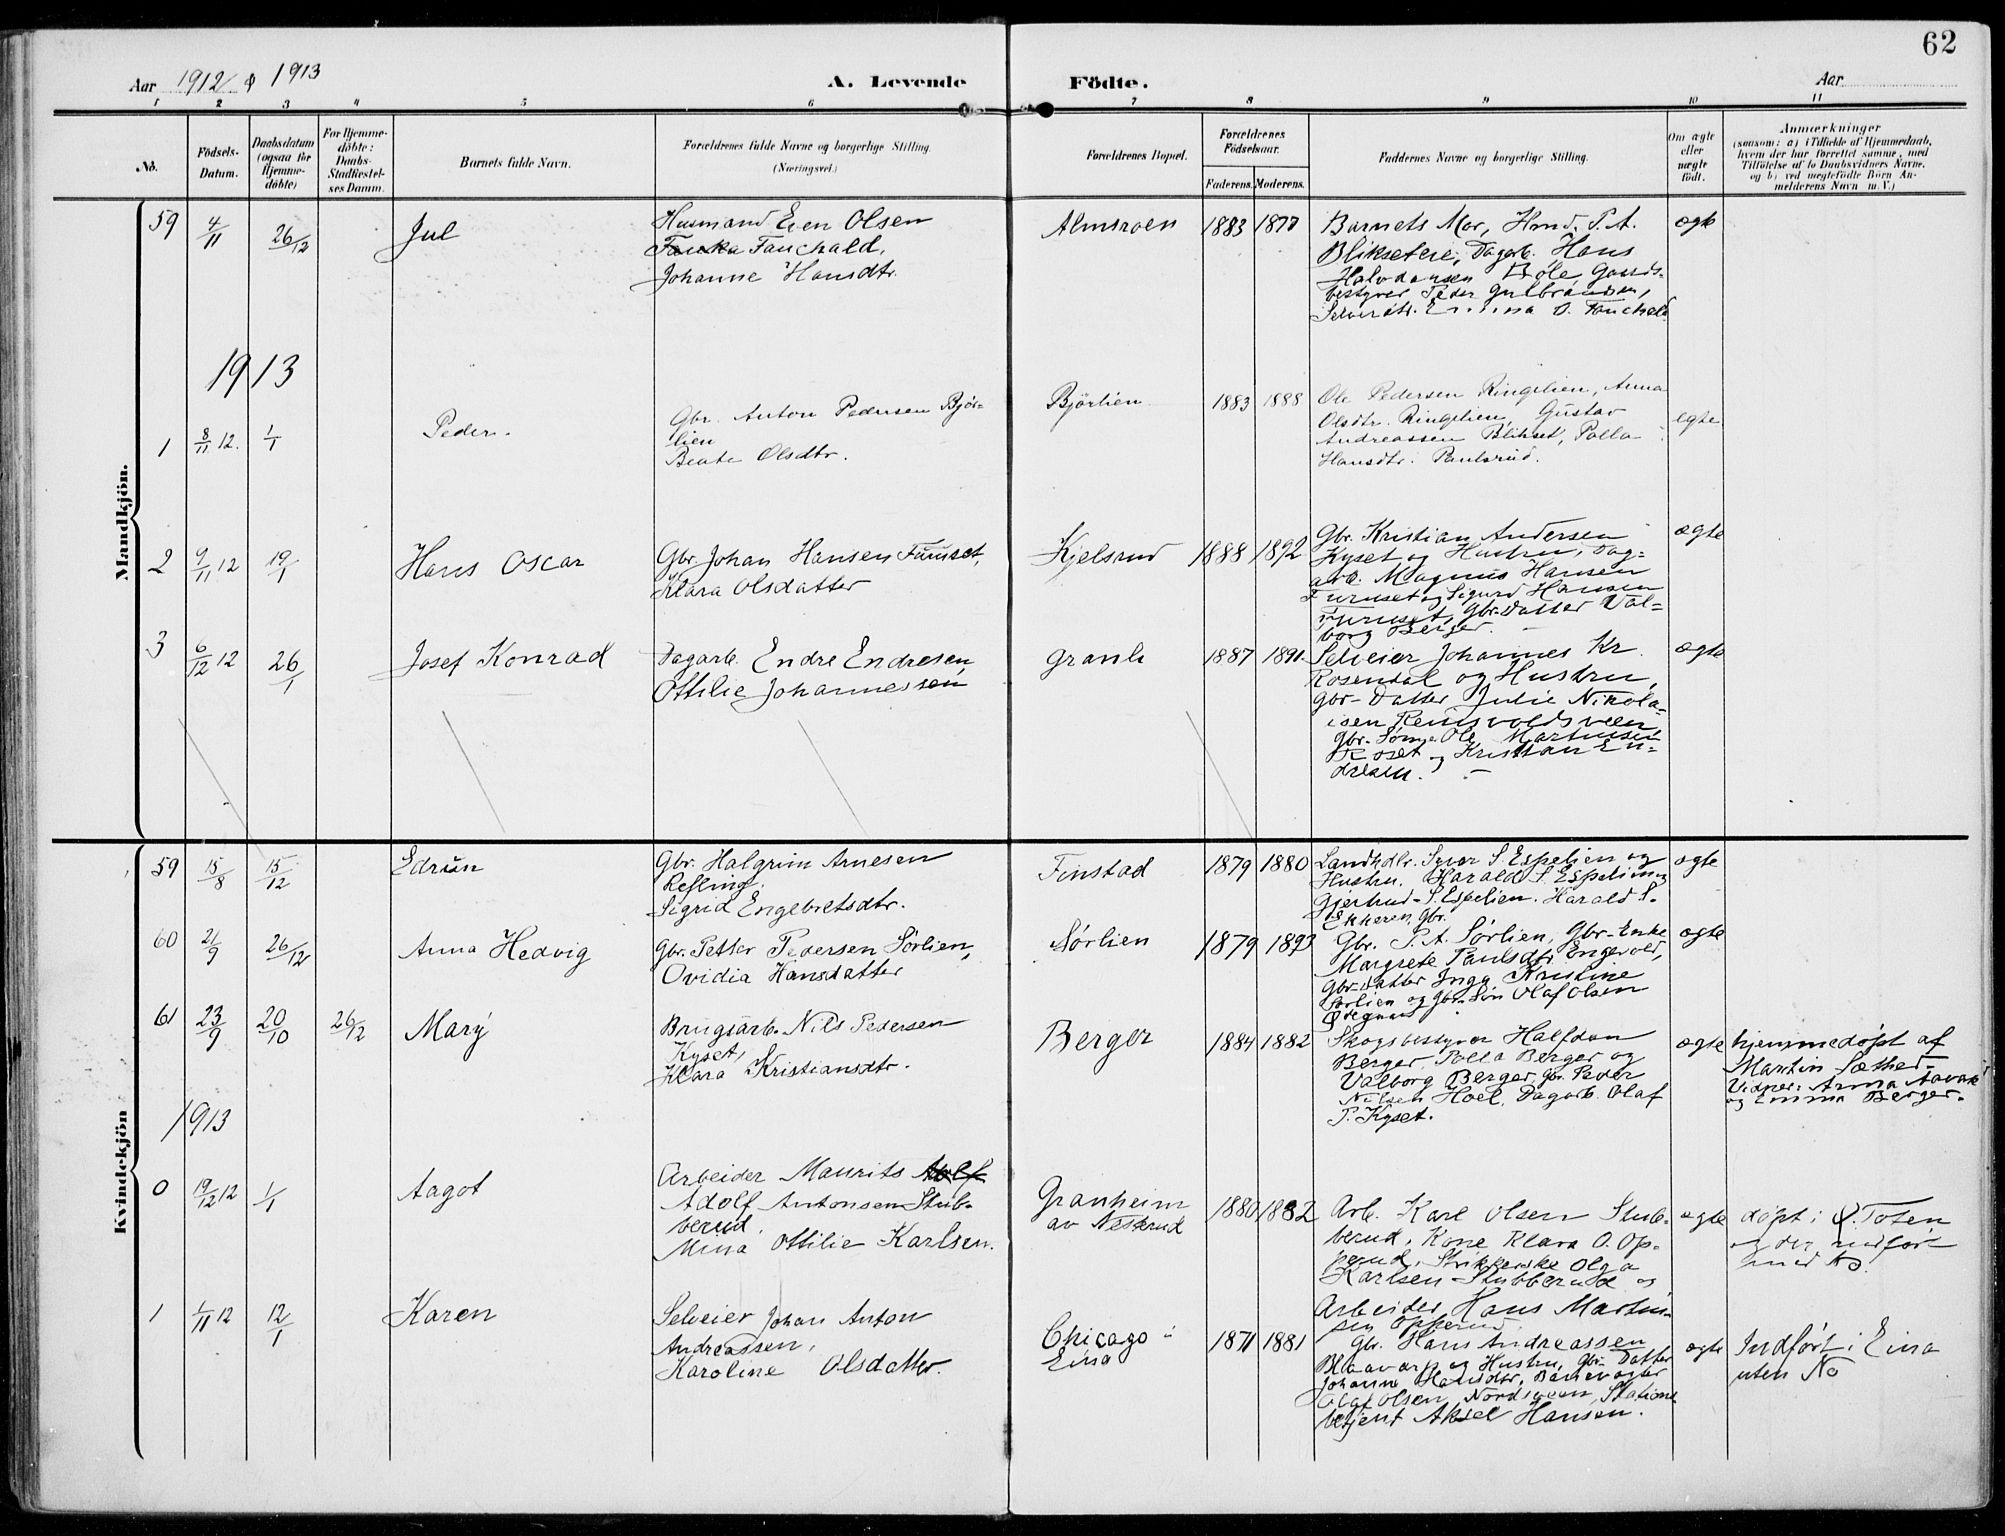 62
Aar 1912 & 1913
A. Levende Födte.
Aar
1 2 3 4 5 6 7 8 9 10 11
No.
Födsels-
Datum.
Daabsdatum
(ogsaa for
Hjemme-
döbte)
For Hjemme-
döbte:
Daabs-
Stadfæstel-
ses Datum.
Barnets fulde Navn.
Forældrenes fulde Navne og borgerlige Stilling.
(Næringsvei.)
Forældrenes Bopæl.
Forældrenes
Födselsaar.
Faderens. Moderens.
Faddernes Navne og borgerlige Stilling.
Om ægte
eller
uægte
födt.
Anmærkninger
(saasom: a) i Tilfælde af Hjemmedaab,
hvem der har forrettet samme, med
Tilföielse af to Daabsvidners Navne,
og b) ved uægtefödte Börn An-
melderens Navn m. V.)
Mandkjön.
59 4/11 26/12 Jul
Husmand Even Olsen
Fauchald,
Johanne Hansdtr.
Almsroen 1883 1877
Barnets Mor, Hmd. P. A.
Blikseteie, Dagarb. Hans
Halvdansen Bøle Gaards-
bestyrer Peder Gulbrandsen,
Selveierdtr. D. Fauchald
ægte
1913
1 8/11 12. 1/1 Peder.
Gbr. Anton Pedersen Bjør-
lien
Beate Olsdtr.
Björlien 1883 1888
Ole Pedersen Ringelien, Anna
Olsdtr. Ringelien, Gustav
Andreassen Blikset, Polla
Hansdtr. Paulsrud.
egte
2 9/11 12 19/1 Hans Oscar
Gbr. Johan Hansen Furuset,
Klara Olsdatter
Kjelsrud 1888 1892
Gbr. Kristian Andersen
Kyset og Hustru, Dag-
arb. Magnus Hansen
Furuset og Sigurd Hansen
Furuset, Gbr. Datter Val-
borg Berger.
ægte
3 6/12 12 26/1 Josef Konrad
Dagarb. Endre Endresen
Ottilie Johannessen
Granli 1887 1891
Selveier Johannes Kr.
Rosendal og Hustru,
Gbr- Datter Julie Nikola-
isen Remsvoldsveen,
Gbr. Sønn Ole Martinsen
Roset og Kristian En-
dresen.
ægte
Kvindekjön
59 15/8 15/12 Edrun
Gbr. Halgrim Arnesen
Refling.
Sigrid Engebretsdtr.
Finstad 1879 1880
Landhdlr. Syver S. Espelien og
Hustru, Harald S. Espelien og
Gjertrud S. Espelien. Harald S.
Ekkeren, Gbr.
ægte
60 21/9 26/12 Anna Hedvig
Gbr. Petter Pedersen Sörlien,
Ovidia Hansdatter
Sørlien 1879 1893
Gbr. P. A. Sörlien, Gbr-Enke
Margrete Paulsdtr. Engevold,
Gbr. datter Inga Kristine
Sørlien og Gbr. Søn Olaf Olsen
ægte
61 23/9 20/10 26/12 Mary
Brugsarb. Nils Pedersen
Kyset,
Klara Kristiansdtr.
Berger 1884 1882
Skogsbestyrer Halfdan
Berger, Polla Berger og
Valborg Berger, Gbr. Peder
Nilsen Hoel, Dagarb. Olaf
P. Kyset.
ægte hjemmedøpt af
Martin Sæther.
Vidner: Anna
og Emma Berger.
1913
0 19/12 12 1/1 Aagot
Arbeider Maurits
Adolf Antonsen Stub-
berud.
Mina Ottilie Karlsen.
Granheim
av Neskrud
1880 1882
Arb. Karl Olsen Stub-
berud, Kone Klara O. Op-
perud, Strikkerske Olga
Karlsen Stubberud og
Arbeider Hans Martin-
sen Opperud
ægte döpt i Ø. Toten
og der indført
med No
1 1/11 12 12/1 Karen
Selveier Johan Anton
Andreassen,
Karoline Olsdatter.
Chicago i
Eina
1871 1881
Gbr. Hans Andreassen
Blaavarp og Hustru, Gbr. Datter
Johanne Hansdtr, Banevogter
Olaf Olsen Nordsveen, Stations-
betjent Aksel Hansen.
ægte Indført i Eina
uten No